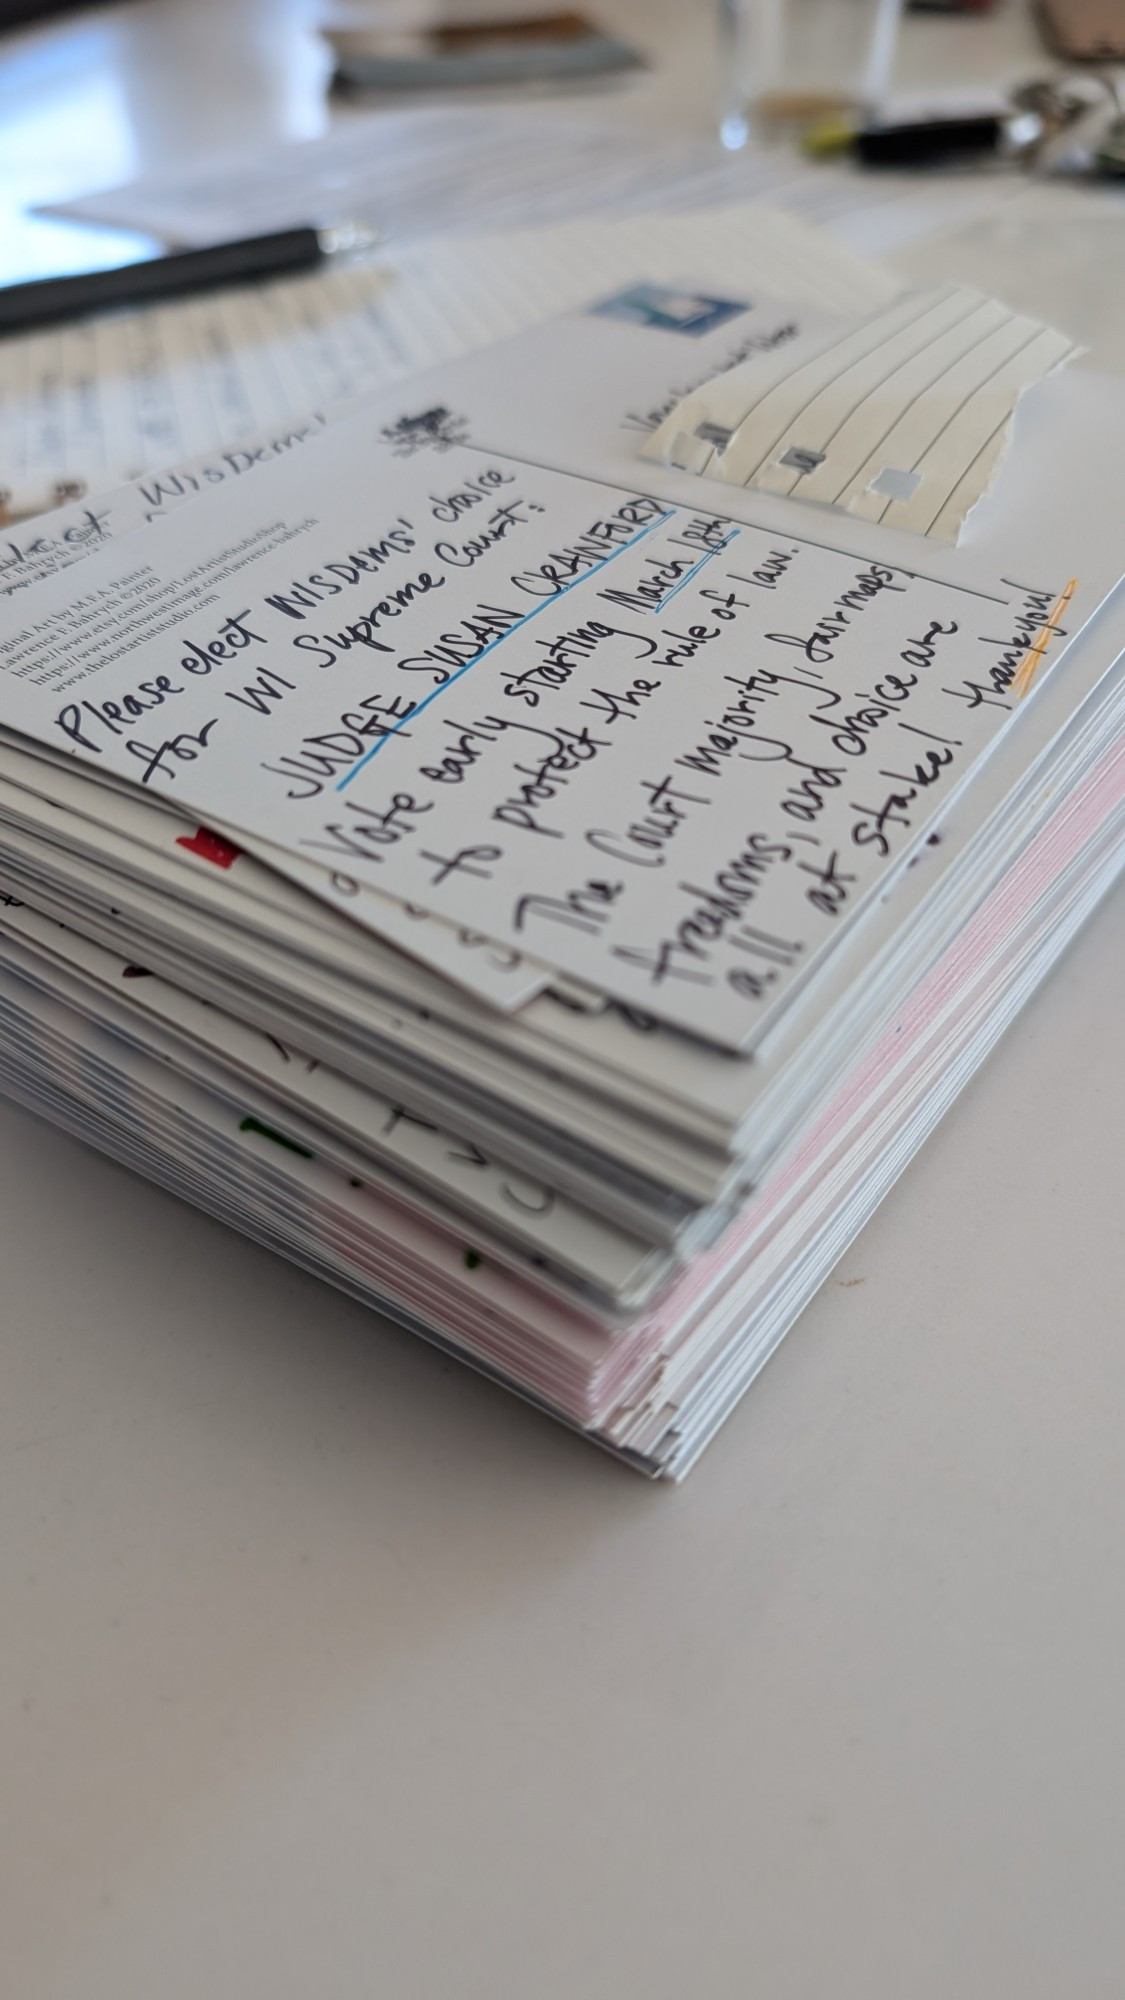 WISDEMS!
Original Art by M.P.A. Painter
Lawrence F. Bahrych © 2020
https://www.etsy.com/shop/LostArtistStudioShop
https://www.northwestimage.com/lawrence-bahrych
www.thelostartiststudio.com
Please elect WISDEMS' choice
for WI Supreme Court:
JUDGE SUSAN CRAWFORD
Vote early starting March 18th
to protect the rule of law.
The Court majority, fair maps,
freedoms, and choice are
all at stake! Thank you!